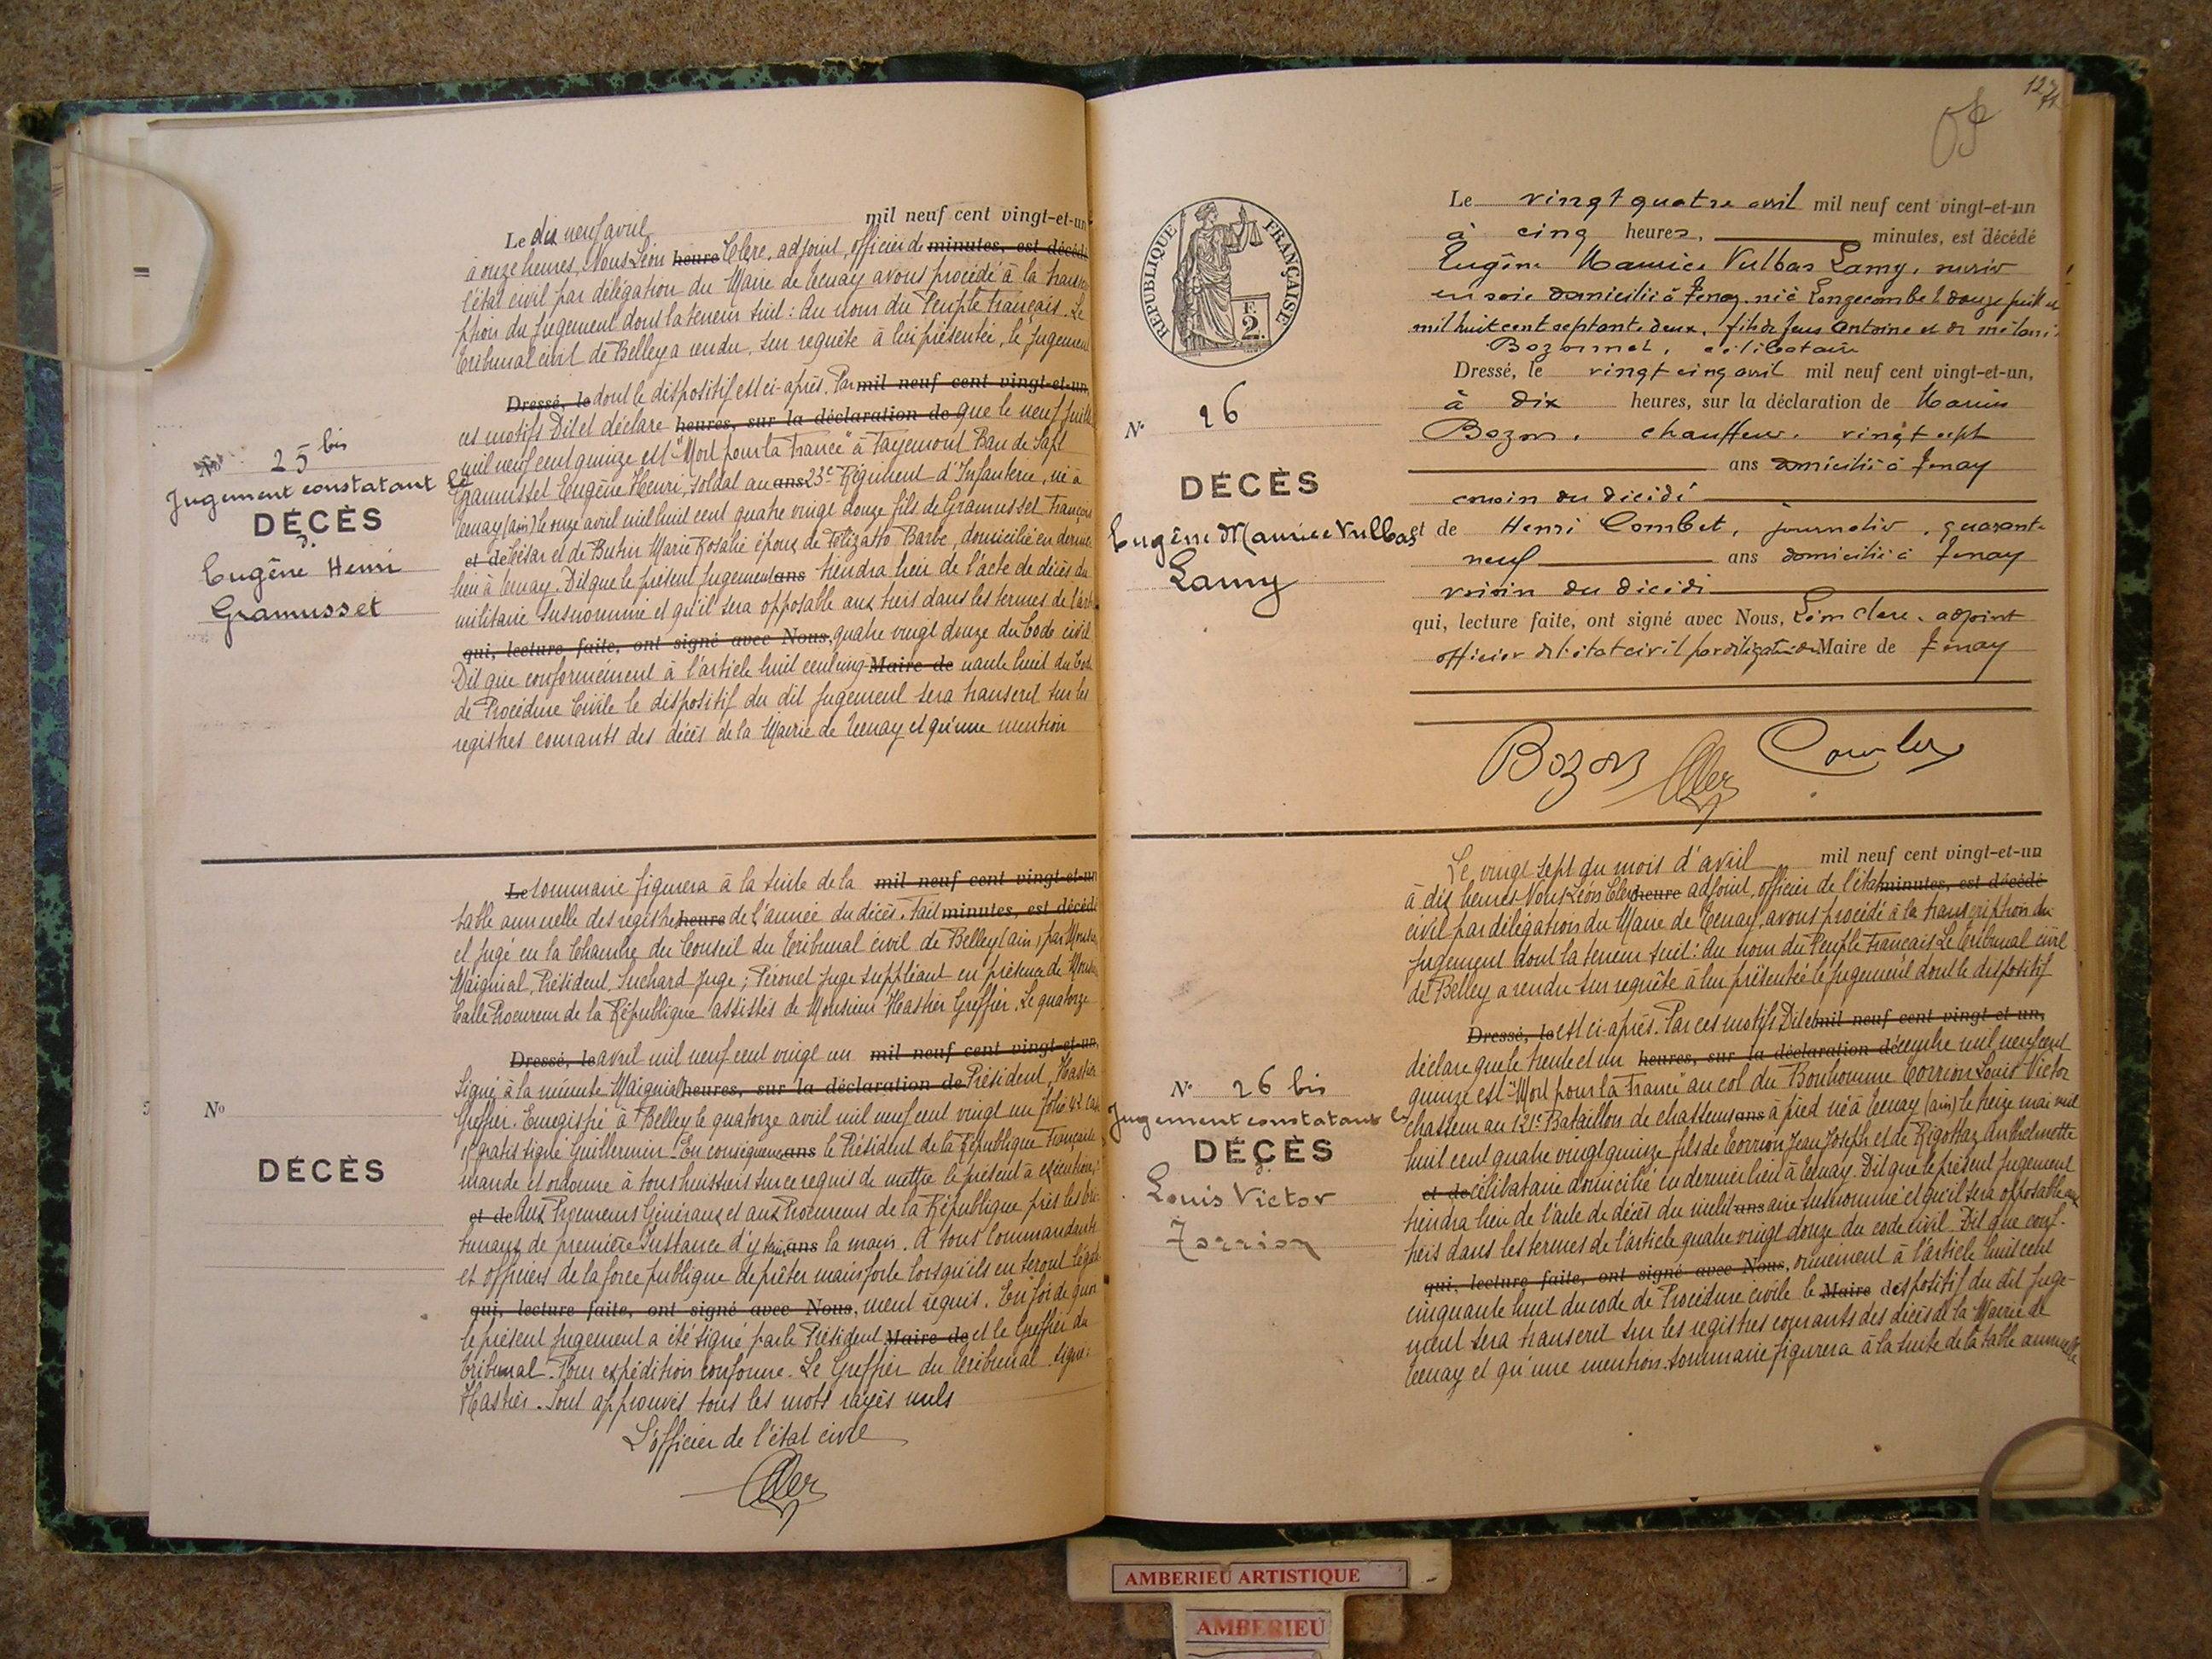 Le dix neuf avril mil neuf cent vingt-et-un
à onze heures, Nous Léon heure Clerc, adjoint, officier de minutes, est décédé
l'état civil par délégation du Maire de Tenay avons procédé à la trans
ption du jugement dont la teneur suit : Au nom du Peuple Français. Le
Tribunal civil de Belley a rendu, sur requête à lui présentée, le jugement
Dressé, le dont le dispositif est ci-après. Par mil neuf cent vingt-et-un,
ces motifs Dit et déclare heures, sur la déclaration de que le neuf juillet
mil neuf cent quinze est "Mort pour la France" à Fayemont Ban de Sapt
Gramusset Eugène Henri, soldat au ans 23e Régiment d'Infanterie, né à
Tenay (ain) le onze avril mil huit cent quatre vingt douze fils de Gramusset François
et de César et de Butin Marie Rosalie époux de Folizatto Barbe, domicilié en dernier
lieu à Tenay. Dit que le présent jugement ans tiendra lieu de l'acte de décès du
militaire susnommé et qu'il sera opposable aux tiers dans les termes de l'art
qui, lecture faite, ont signé avec Nous, quatre vingt douze du Code civil
Dit que conformément à l'article huit cent cinq Maire de uante huit du Code
de Procédure Civile le dispositif du dit jugement sera transcrit sur les
registres courants des décès de la Mairie de Tenay et qu'une mention
No 25 bis
Jugement constatant le
DÉCÈS
D.
Eugène Henri
Gramusset
Le sommaire figurera à la suite de la mil neuf cent vingt-et-un
table annuelle des registres heure de l'année du décès. Fait minutes, est décédé
et jugé en la Chambre du Conseil du Tribunal civil de Belley (ain), par Messieurs
Maignial, Président, Suchard juge, Péronet juge suppléant en présence de Monsieur
Calle Procureur de la République assistés de Monsieur Hastier Greffier. Le quatorze
Dressé, le avril mil neuf cent vingt un mil neuf cent vingt-et-un,
Signé à la minute Maignial heures, sur la déclaration de Président, Hastier
Greffier. Enregistré à Belley le quatorze avril mil neuf cent vingt un folio 42 case
gratis signé Guillermin. En conséquence ans le Président de la République Française
mande et ordonne à tous huissiers sur ce requis de mettre le présent à exécution,
et de Aux Procureurs Généraux et aux Procureurs de la République près les tri
bunaux de première Instance d'y tenir ans la main. A tous Commandants
et officiers de la force publique de prêter main forte lorsqu'ils en seront légale
qui, lecture faite, ont signé avec Nous, ment requis. En foi de quoi
le présent jugement a été signé par le Président Maire de et le Greffier du
Tribunal. Pour expédition conforme. Le Greffier du Tribunal signé :
Hastier. Sont approuvés tous les mots rayés nuls
L'officier de l'état civil
Clerc
No
DÉCÈS
127
71
RÉPUBLIQUE FRANÇAISE
F.
2.
No 26
DÉCÈS
Eugène Maurice Vulbas
Lamy
Le vingt quatre avril mil neuf cent vingt-et-un
à cinq heures, minutes, est décédé
Eugène Maurice Vulbas Lamy, ouvrier
en soie domicilié à Tenay, né à Longecombe le douze juillet
mil huit cent septante deux, fils de feus Antoine et de Mélanie
Bozonnet, célibataire
Dressé, le vingt cinq avril mil neuf cent vingt-et-un,
à dix heures, sur la déclaration de Marius
Bozon, chauffeur, vingt sept
ans domicilié à Tenay
cousin du décédé
et de Henri Combet, journalier, quarante
neuf ans domicilié à Tenay
voisin du décédé
qui, lecture faite, ont signé avec Nous, Léon Clerc, adjoint
officier de l'état civil par délégation du Maire de Tenay
Bozon Clerc Combet
Le vingt sept du mois d'avril mil neuf cent vingt-et-un
à dix heures Nous Léon Clerc heure adjoint, officier de l'état minutes, est décédé
civil par délégation du Maire de Tenay, avons procédé à la transcription du
jugement dont la teneur suit : Au nom du Peuple Français Le Tribunal civil
de Belley a rendu sur requête à lui présentée le jugement dont le dispositif
Dressé, le est ci-après. Par ces motifs Dit et mil neuf cent vingt et un,
déclare que le trente et un heures, sur la déclaration de décembre mil neuf cent
quinze est "Mort pour la France" au col du Bonhomme Torrion Louis Victor
chasseur au 121e Bataillon de chasseurs ans à pied né à Tenay (ain) le treize mai mil
huit cent quatre vingt quinze fils de Torrion Jean Joseph et de Rigottaz Anthelmette
et de célibataire domicilié en dernier lieu à Tenay. Dit que le présent jugement
tiendra lieu de l'acte de décès du milit ans aire susnommé et qu'il sera opposable aux
tiers dans les termes de l'article quatre vingt douze du code civil. Dit que conf-
qui, lecture faite, ont signé avec Nous, ormément à l'article huit cent
cinquante huit du code de Procédure civile le Maire de dispositif du dit juge-
ment sera transcrit sur les registres courants des décès de la Mairie de
Tenay et qu'une mention sommaire figurera à la suite de la table annuelle
No 26 bis
Jugement constatant le
DÉCÈS
D.
Louis Victor
Torrion
AMBERIEU ARTISTIQUE
AMBERIEU